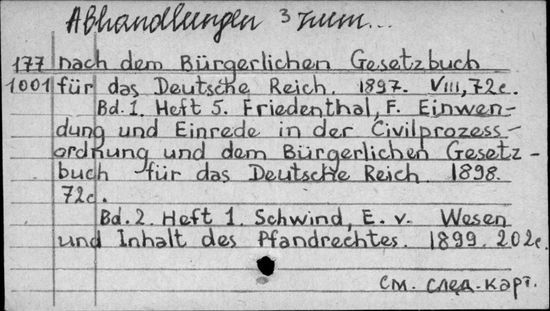 Abhandlungen 3 zum...
177 nach dem Bürgerlichen Gesetzbuch
1001 für das Deutsche Reich. 1897. VIII, 72c.
Bd. 1. Heft 5. Friedenthal, F. Einwen-
dung und Einrede in der Civilprozess-
ordnung und dem Bürgerlichen Gesetz-
buch für das Deutsche Reich 1898.
72c.
Bd. 2. Heft 1. Schwind, E. v. Wesen
und Inhalt des Pfandrechtes. 1899. 202c.
См. след. карт.